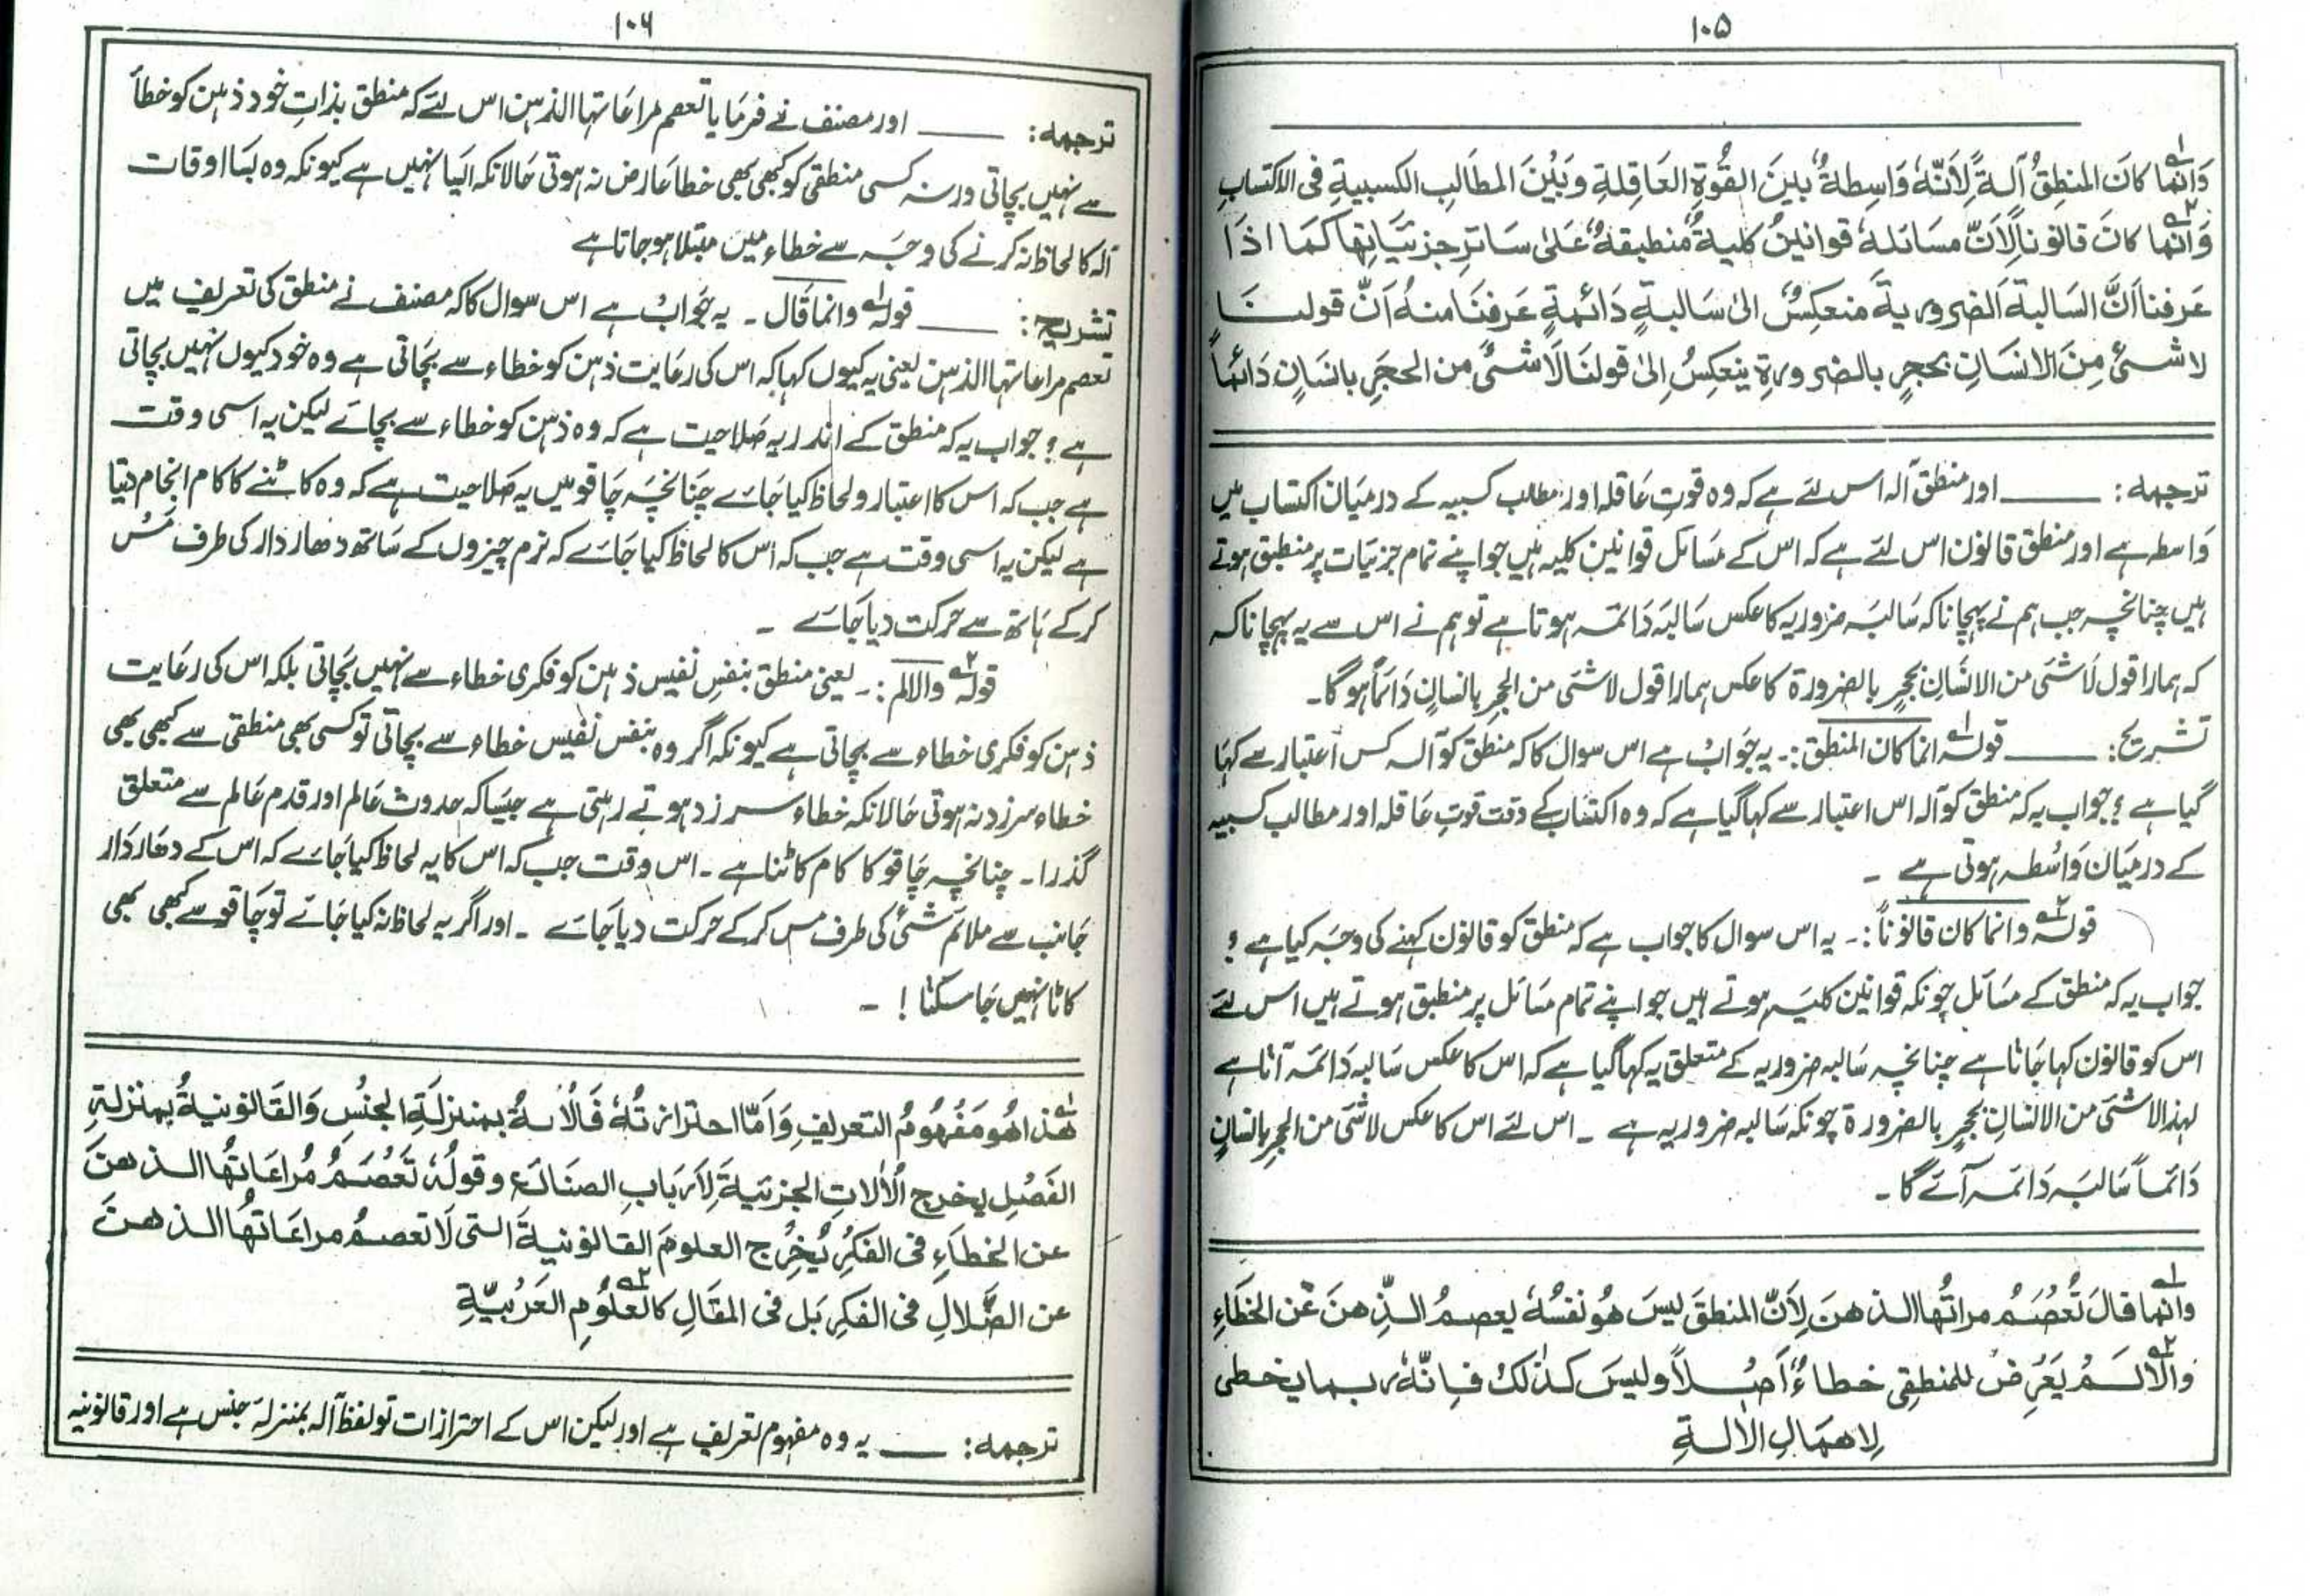 ۱۰۵
وَانّما کانَ المنطِقُ آلۃً لِاَنّہٗ وَاسِطۃٌ بینَ القُوۃِ العَاقِلۃِ وبَیْنَ المطَالبِ الکسبیۃِ فی الاکتسابِ
وَانّما کانَ قانونالِاَنّ مسَائلہٗ قوانینُ کلیۃٌ منطبقۃٌ عَلیٰ سَائرِ جزئیَّاتِھا کمَا اذَا
عَرفنا اَنَّ السَالبۃَ الضروریۃَ منعکِسٌ الیٰ سَالبۃٍ دَائمۃٍ عَرفنَا منہُ اَنّ قولنَا
لا شیْئَ مِنَ الانسَانِ بحجرٍ بالضرورۃِ ینعکِسُ اِلیٰ قولنَا لَاشیْئَ من الحجَرِ بانسَانٍ دَائماً
ترجمہ: ــــــ اور منطق آلہ اس لئے ہے کہ وہ قوتِ عَاقلہ اور مطالب کسبیہ کے درمیَان اکتساب میں
وَاسطہ ہے اور منطق قانون اس لئے ہے کہ اس کے مسَائل قوانین کلیہ ہیں جو اپنے تمام جزئیات پر منطبق ہوتے
ہیں چنانچہ جب ہم نے پہچانا کہ سَالبَہ ضروریہ کا عکس سَالبَہ دَائمہ ہوتا ہے تو ہم نے اس سے یہ پہچانا کہ
کہ ہمارا قول لَاشئَ من الانسَانِ بحجرٍ بالضرورۃ کا عکس ہمارا قول لاشئَ من الحجرِ بانسانٍ دَائماً ہوگا۔
تشریح: ــــــ قولہ انما کان المنطق:۔ یہ جَوابُ ہے اس سوال کا کہ منطق کو آلہ کس اعتبار سے کہَا
گیا ہے؟ جواب یہ کہ منطق کو آلہ اس اعتبار سے کہا گیا ہے کہ وہ اکتساب کے وقت قوتِ عَاقلہ اور مطالب کسبیہ
کے درمیَان وَاسُطہ ہوتی ہے ۔
قولہ وانما کان قانوناً:۔ یہ اس سوال کا جواب ہے کہ منطق کو قانون کہنے کی وجَہ کیا ہے؟
جواب یہ کہ منطق کے مسَائل چونکہ قوانین کلیَہ ہوتے ہیں جو اپنے تمام مسَائل پر منطبق ہوتے ہیں اس لئے
اس کو قانون کہا جَاتا ہے چنانچہ سَالبہ ضروریہ کے متعلق یہ کہا گیا ہے کہ اس کا عکس سَالبہ دَائمَہ آتا ہے
لہذا لاشئَ من الانسانِ بحجرٍ بالضرورۃ چونکہ سَالبہ ضروریہ ہے ۔ اس لئے اس کا عکس لاشئَ من الحجرِ بانسانٍ
دَائماً سَالبَہ دَائمہ آئے گا ۔
وانّما قالَ تُعْصَمُ مراتُھا الذھنَ لِاَنّ المنطقَ لیسَ ھُو نفسُہٗ یعصِمُ الذِّھنَ عَنِ الخطَاءِ
وَاِلّا لَمْ یَعْرِضْ للمنطقِی خطاءٌ اَصْلاً ولیسَ کذٰلکَ فاِنّہٗ ربما یخطی
لِاھمَالِ الاٰلۃِ
۱۰۶
ترجمہ: ــــــ اور مصنف نے فرمَایا تعصم مراعَاتھا الذہن اس لئے کہ منطق بذاتِ خود ذہن کو خطأ
سے نہیں بچاتی ورنہ کسی منطقی کو کبھی بھی خطا عَارض نہ ہوتی حَالانکہ ایسَا نہیں ہے کیونکہ وہ بسَا اوقات
آلہ کا لحاظ نہ کرنے کی وجَہ سے خطاء میں مبتلا ہو جاتا ہے
تشریح: ــــــ قولہ وانما قَال ۔ یہ جَوابُ ہے اس سوال کا کہ مصنف نے منطق کی تعریف میں
تعصم مراعاتھا الذہن یعنی یہ کیوں کہا کہ اس کی رعَایت ذہن کو خطاء سے بچَاتی ہے وہ خود کیوں نہیں بچاتی
ہے؟ جواب یہ کہ منطق کے اندر یہ صَلاحیت ہے کہ وہ ذہن کو خطاء سے بچائے لیکن یہ اسی وقت
ہے جب کہ اس کا اعتبار ولحاظ کیا جَائے چنانچَہ چَاقو میں یہ صَلاحیت ہے کہ وہ کاٹنے کا کام انجام دیتا
ہے لیکن یہ اسی وقت ہے جب کہ اس کا لحاظ کیا جَائے کہ نرم چیزوں کے سَاتھ دھار دار کی طرف مَس
کر کے ہَاتھ سے حرکت دیا جَائے ۔
قولہ والالم:۔ یعنی منطق بنفسِ نفیس ذہن کو فکری خطاء سے نہیں بچَاتی بلکہ اس کی رعَایت
ذہن کو فکری خطاء سے بچاتی ہے کیونکہ اگر وہ بنفس نفیس خطاء سے بچاتی تو کسی بھی منطقی سے کبھی بھی
خطاء سرزد نہ ہوتی حَالانکہ خطاء سرزد ہوتے رہتی ہے جیسَا کہ حدوث عَالم اور قدم عَالم سے متعلق
گذرا ۔ چنانچہ چَاقو کا کام کاٹنا ہے ۔ اس وقت جب کہ اس کا یہ لحاظ کیا جَائے کہ اس کے دھار دَار
جَانب سے ملائم شئ کی طرف مس کر کے حرکت دیا جَائے ۔ اور اگر یہ لحاظ نہ کیا جَائے تو چَاقو سے کبھی بھی
کاٹا نہیں جَا سکتا ! ۔
ھٰذا ھُو مَفْھُومُ التعریفِ وَاَمّا احترازتُہٗ فَالاٰلۃُ بمنزلَۃِ الجنْسِ وَالقَانونیۃُ بمنزلۃِ
الفَصْلِ یخرج الْاٰلاتِ الجزئیۃَ لِاَربَابِ الصنَائع وقولُہٗ تَعْصَمُ مُراعَاتُھا الذھنَ
عن الخطاَءِ فی الفکرِ یُخْرِج العلومَ القانونیۃَ التی لَا تعصمُ مراعَاتُھا الذھنَ
عن الضَّلالِ فی الفکرِ بَل فی المقَالِ کالعُلُومِ العَرَبیّۃِ
ترجمہ: ــــــ یہ وہ مفہوم تعریف ہے اور لیکن اس کے احترازات تو لفظ آلہ بمنزلۂ جنس ہے اور قانونیہ